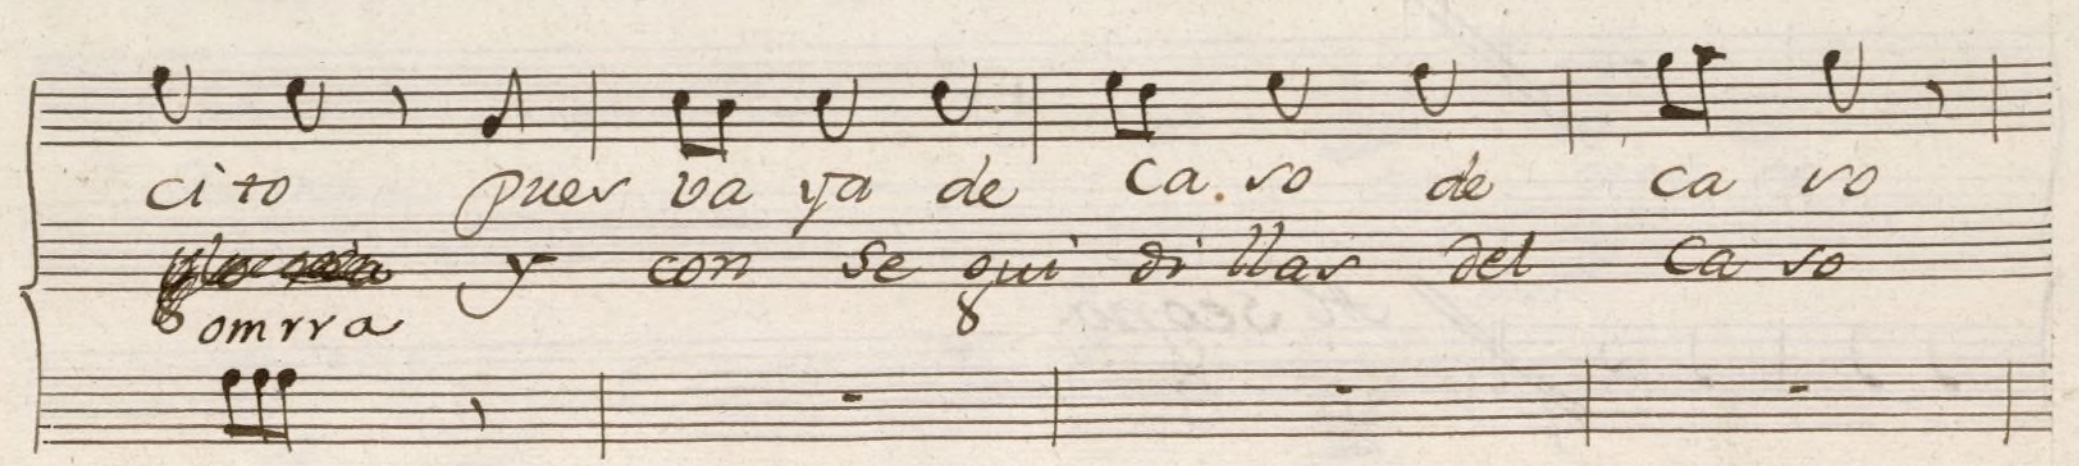 ci to pues va ya de ca so de ca so
y con se gui di llas del ca so
omrra